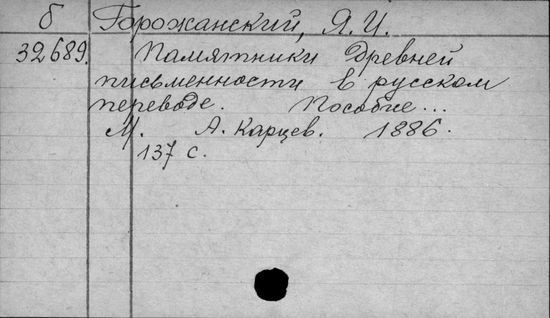 б Горожанский, Я. И.
32689. Памятники древней
письменности в русском
переводе. Пособие...
М. А. Карцев. 1886.
137 с.